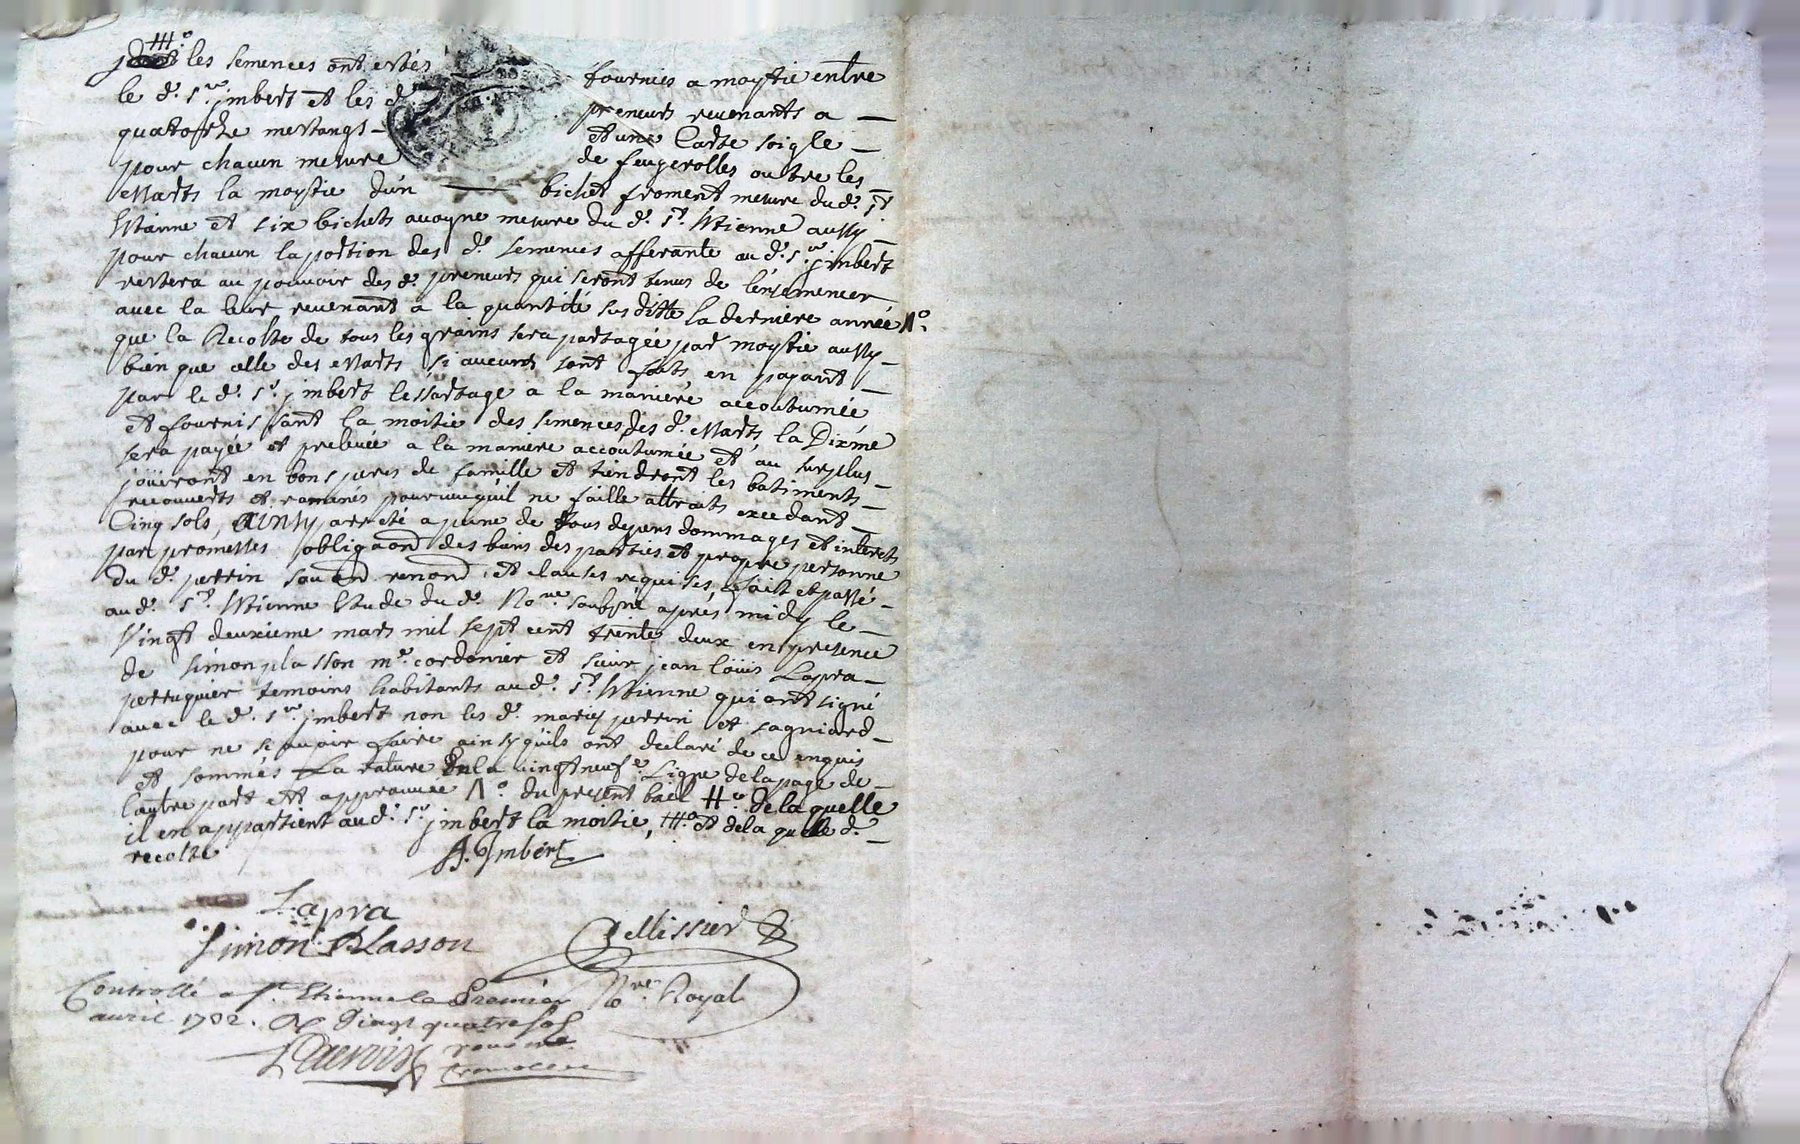 III.o
les semences ont estés fournies a moytie entre
le d.t s.r jmbert et les d.ts preneurs reuenants a
quatorze mestangs et une Carte soigle
pour chacun mesure de feugerolles outre les
essarts la moytie dun bichet froment mesure dud.t s.t
Estienne et six bichets auoyne mesure du d.t s.t Estienne aussy
pour chacun la portion des d.t semences afferante au d.t s.r jmbert
restera au pouuoir des d.t preneurs qui seront tenus de lensemencer
auec la leur reuenant a la quantité sus ditte la derniere année Λ.o
que la Recolte de tous les grains sera partagée par moytie aussy
bien que celle des essarts si aucuns sont faits en payant
par le d.t s.r jmbert lessartage a la maniere accoutumée
et fournissant la moitie des semences des d.t essarts la Dixme
sera payée et preleuée a la maniere accoutumée et au surplus
joüiront en bons peres de famille et tiendront les batiments
recouverts et pourueuquil ne faille attraits excedant
Cinq sols, ainsy aresté a peine de tous depens dommages et interets
par promesses obligaon des biens des parties et propre personne
du d.t perrin souon renon et clauses requises, fait et passé
aud.t s.t Estienne Estude du d.t No.re soubsné après midy le
Vingt deuxieme mars mil sept cent trente deux en presence
de simon plasson m.e cordonier et sieur jean loüis Lapra
perruquier temoins habitants aud.t s.t Estienne qui ont signé
auec le d.t s.r jmbert non les d.t maries perrin et sagniard
pour ne sçauoir faire ainsy quils ont declaré de ce enquis
et sommés La rature En la vingtneuf.e Ligne de la page de
lautre part est approuuée Λ.o du present bail II.o de la quelle
il en appartient au d.t s.r jmbert la moitie, III.o et de la quelle d.t
recolte
Jmbert
Lapra
Simon Plasson
Pellissier
No.re Royal
Controllé a s.t Estienne le Premier
auril 1732. Vingt quatre sols